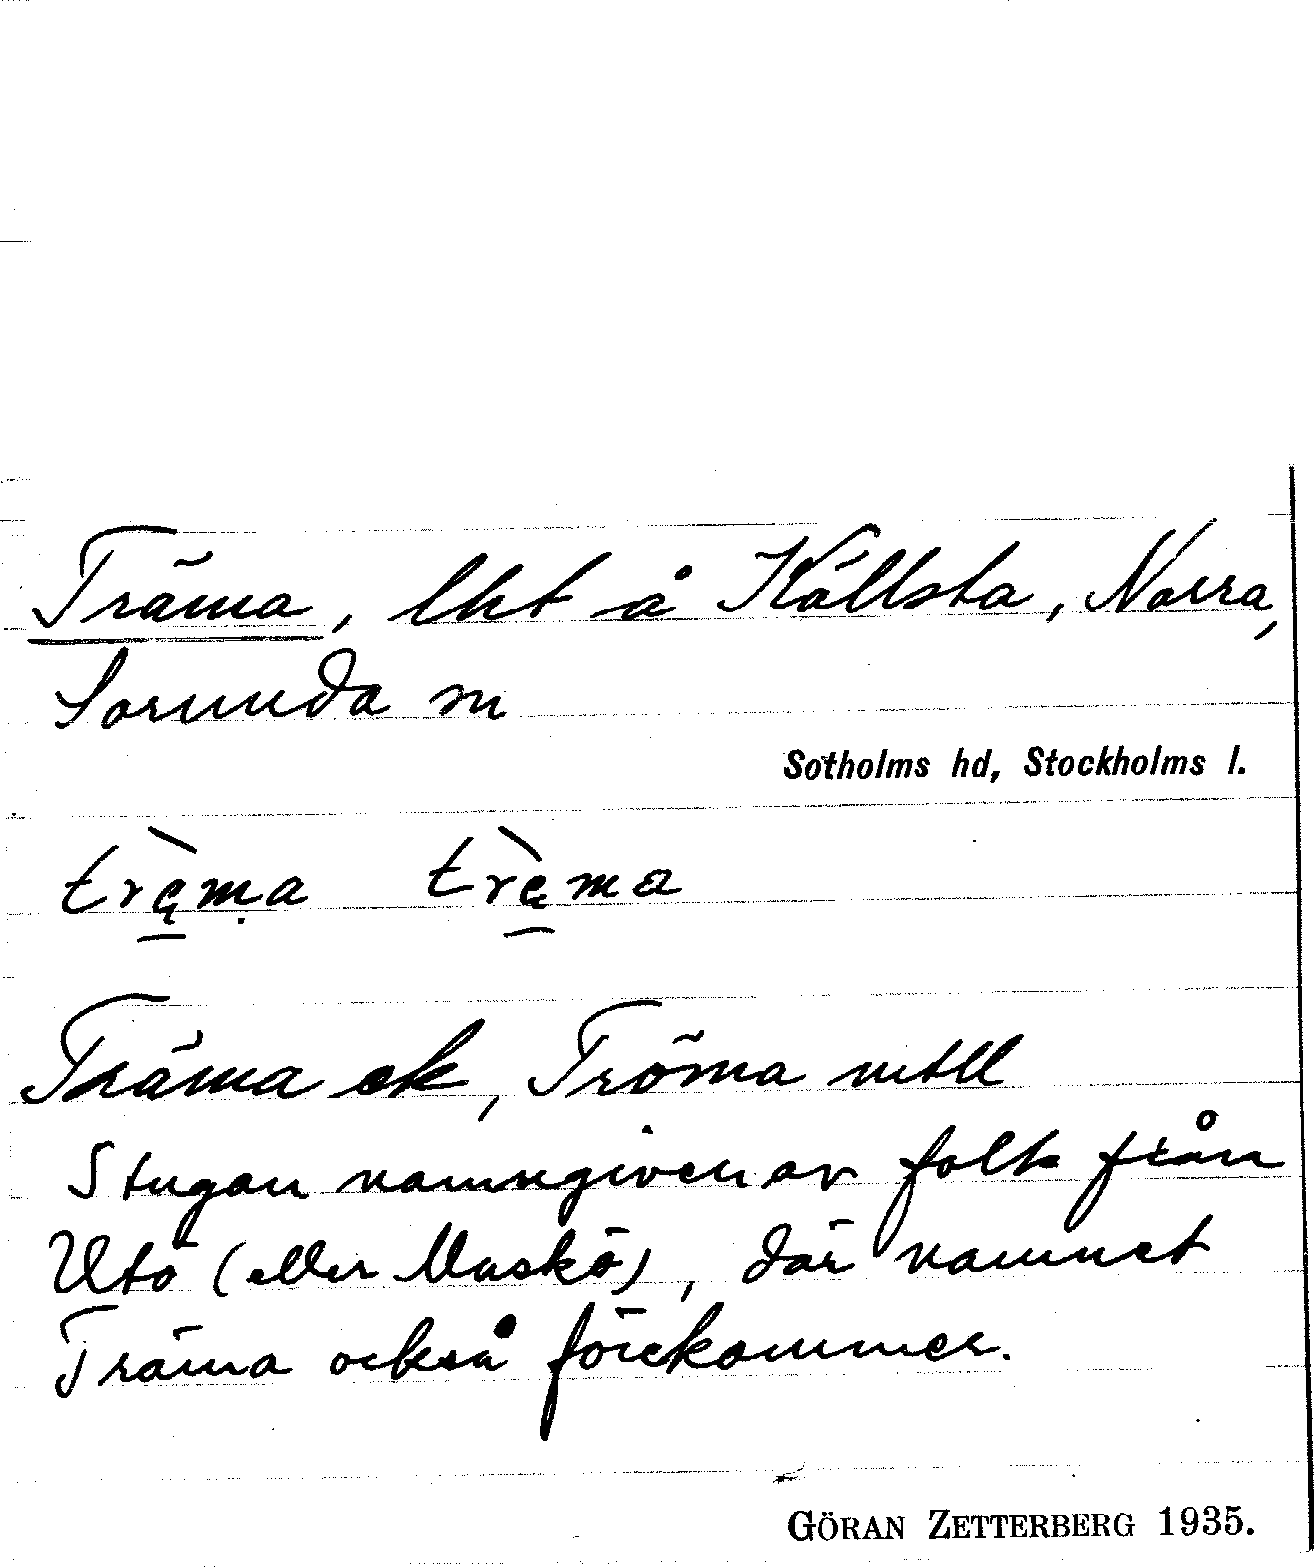 Träma, lht å Källsta, Norra,
Sorunda sn
Sotholms hd, Stockholms l.
trą̀ma trą̀ma
Träma ek, Tröma mtll
Stugan namngiven av folk från
Utö (eller Muskö), där namnet
Träma också förekommer.
GÖRAN ZETTERBERG 1935.